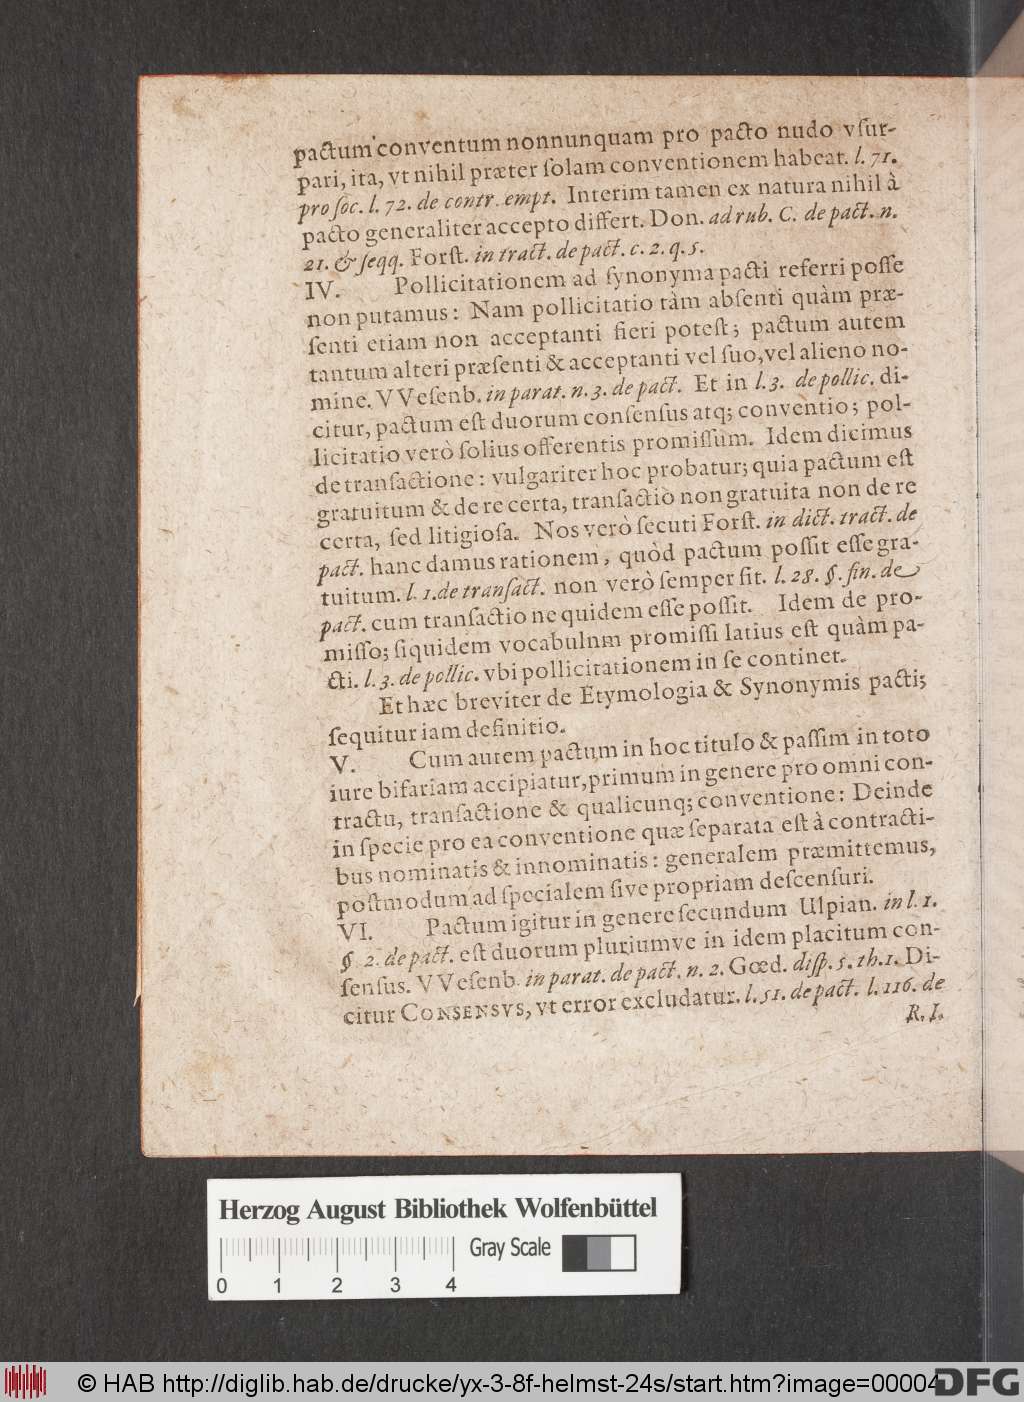 pactum conventum nonnunquam pro pacto nudo vſur-
pari, ita, vt nihil præter ſolam conventionem habeat. l. 71.
pro ſoc. l. 72. de contr. empt. Interim tamen ex natura nihil à
pacto generaliter accepto differt. Don. ad rub. C. de pact. n.
21. & ſeqq. Forſt. in tract. de pact. c. 2. q. 5.
IV. Pollicitationem ad ſynonyma pacti referri poſſe
non putamus: Nam pollicitatio tàm abſenti quàm præ-
ſenti etiam non acceptanti fieri poteſt; pactum autem
tantum alteri præſenti & acceptanti vel ſuo, vel alieno no-
mine. VVeſenb. in parat. n. 3. de pact. Et in l. 3. de pollic. di-
citur, pactum eſt duorum conſenſus atq; conventio; pol-
licitatio verò ſolius offerentis promiſſum. Idem dicimus
de tranſactione: vulgariter hoc probatur; quia pactum eſt
gratuitum & de re certa, tranſactio non gratuita non de re
certa, ſed litigioſa. Nos verò ſecuti Forſt. in dict. tract. de
pact. hanc damus rationem, quòd pactum poſſit eſſe gra-
tuitum. l. 1. de tranſact. non verò ſemper ſit. l. 28. §. fin. de
pact. cum tranſactio ne quidem eſſe poſſit. Idem de pro-
miſſo; ſiquidem vocabulnm promiſſi latius eſt quàm pa-
cti. l. 3. de pollic. vbi pollicitationem in ſe continet.
Et hæc breviter de Etymologia & Synonymis pacti;
ſequitur iam definitio.
V. Cum autem pactum in hoc titulo & paſſim in toto
iure bifariam accipiatur, primum in genere pro omni con-
tractu, tranſactione & qualicunq; conventione: Deinde
in ſpecie pro ea conventione quæ ſeparata eſt à contracti-
bus nominatis & innominatis: generalem præmittemus,
poſtmodum ad ſpecialem ſive propriam deſcenſuri.
VI. Pactum igitur in genere ſecundum Ulpian. in l. 1.
§. 2. de pact. eſt duorum pluriumve in idem placitum con-
ſenſus. VVeſenb. in parat. de pact. n. 2. Gœd. diſp. 5. th. 1. Di-
citur CONSENSVS, vt error excludatur. l. 51. de pact. l. 116. de
R. I.
Herzog August Bibliothek Wolfenbüttel
Gray Scale
0 1 2 3 4
© HAB http://diglib.hab.de/drucke/yx-3-8f-helmst-24s/start.htm?image=00004
DFG